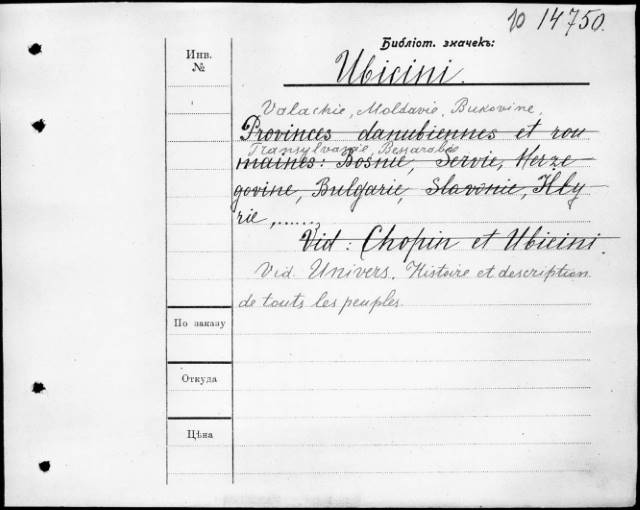 № 14750.
Библіот. значекъ:
Инв.
№
Ubicini.
Valachie, Moldavie, Bukovine,
Provinces danubiennes et rou
Transylvanie, Bessarabie
maines: Bosnie, Servie, Herze
govine, Bulgarie, Slavonie, Illy
rie, ......,
Vid: Chopin et Ubicini.
Vid. Univers. Histoire et description
de touts les peuples.
По заказу
Откуда
Цѣна